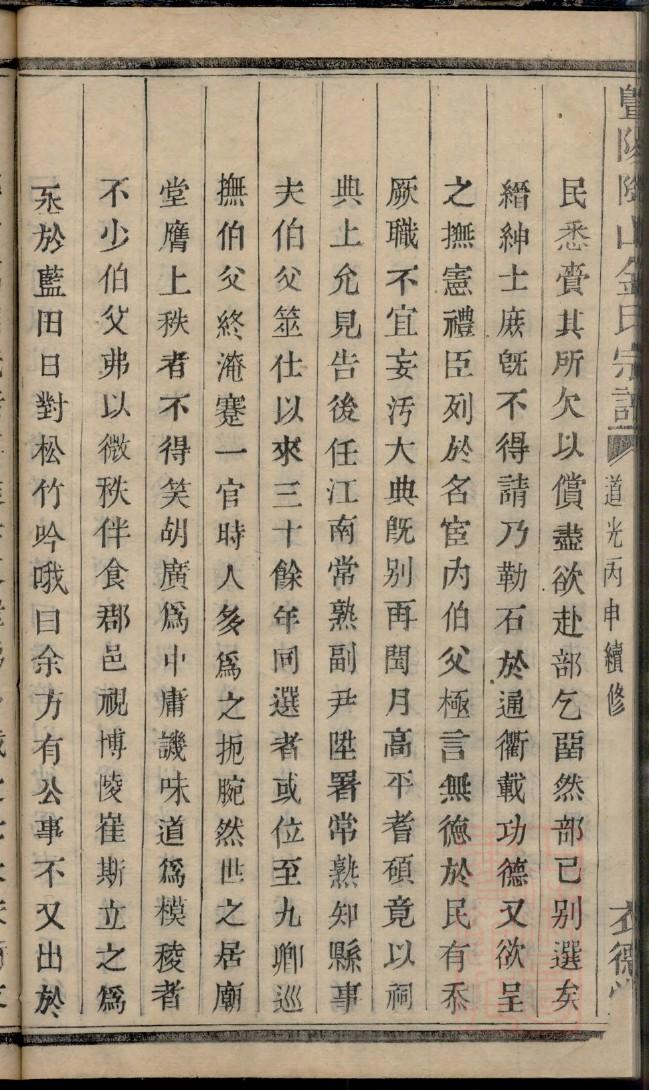 暨陽陰山金氏宗譜
道光丙申續修
民悉賣其所欠以償盡欲赴部乞畱然部已別選矣
縉紳士庶旣不得請乃勒石於通衢載功德又欲呈
之撫憲禮臣列於名宦內伯父極言無德於民有忝
厥職不宜妄汚大典旣別再閏月高平耆碩竟以祠
典上允見告後任江南常熟副尹陞署常熟知縣事
夫伯父筮仕以來三十餘年同選者或位至九卿巡
撫伯父終淹蹇一官時人多爲之扼腕然世之居廟
堂膺上秩者不得笑胡廣爲中庸譏味道爲模稜者
不少伯父弗以微秩伴食郡邑視博陵崔斯立之爲
丞於藍田日對松竹吟哦曰余方有公事不又出於